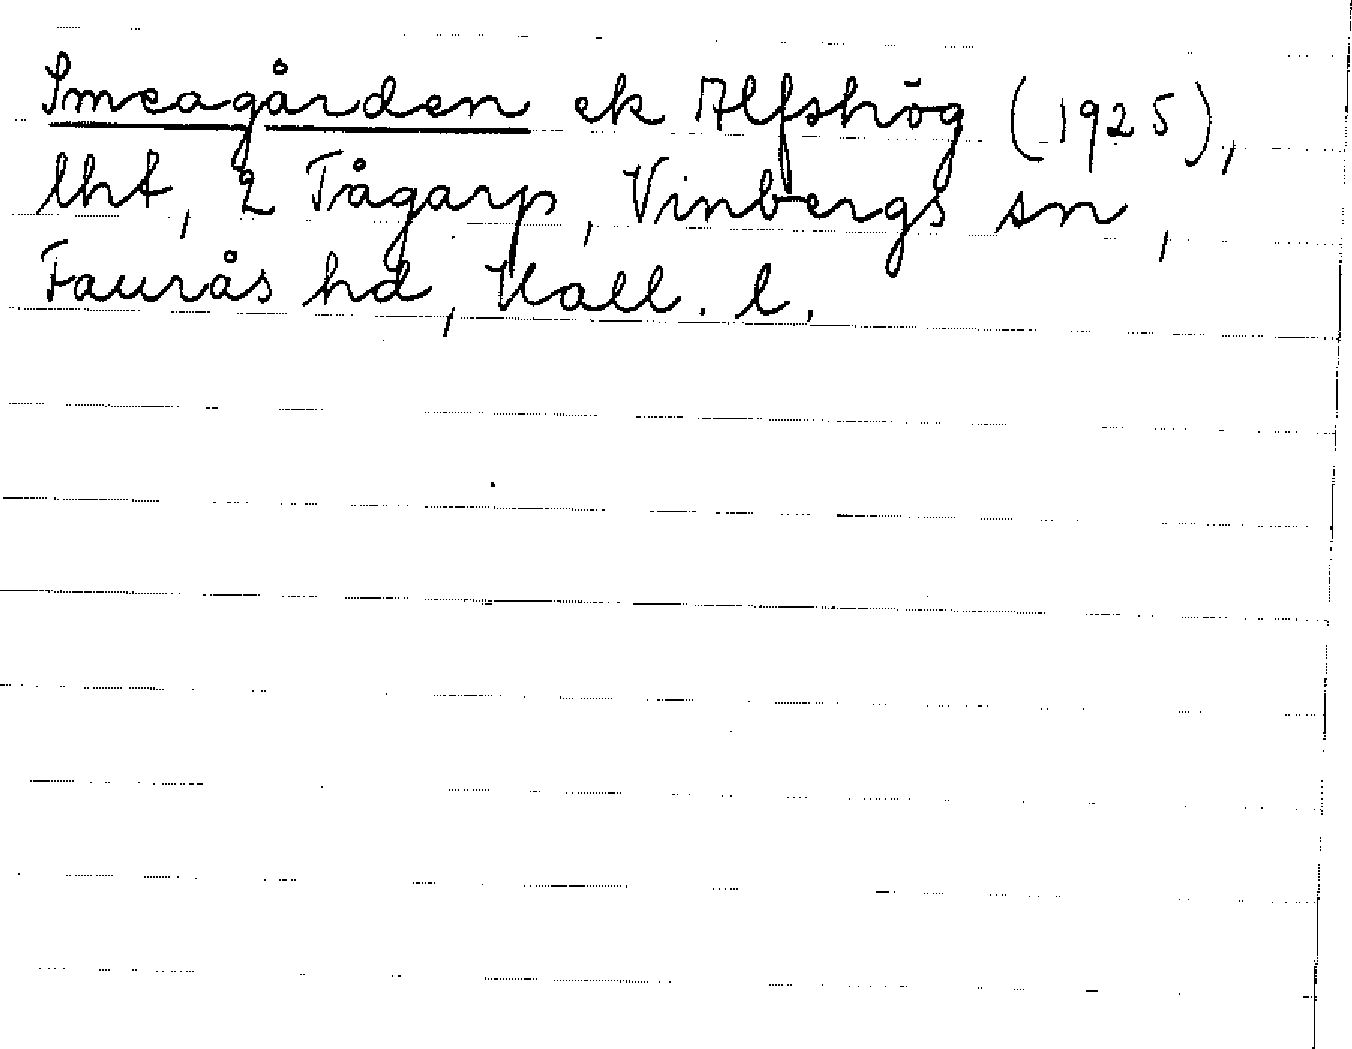 Smeagården ek Alfshög (1925),
lht, 2 Tågarp, Vinbergs sn,
Faurås hd, Hall. l.